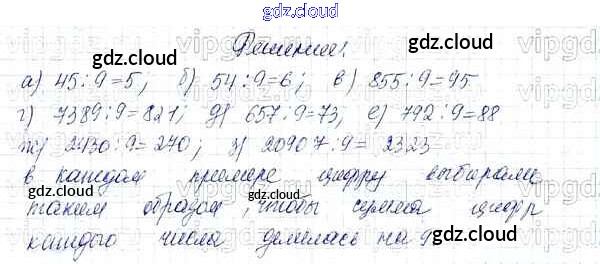 gdz.cloud
gdz.cloud
Решение:
gdz.cloud
а) 45:9=5; б) 54:9=6; в) 855:9=95
г) 7389:9=821; д) 657:9=73, е) 792:9=88
ж) 2430:9=240; з) 20907:9=2323
в каждом примере цифру выбирали
gdz.cloud
gdz.cloud
таким образом, чтобы сумма цифр
каждого числа делилась на 9
gdz.cloud
gdz.cloud